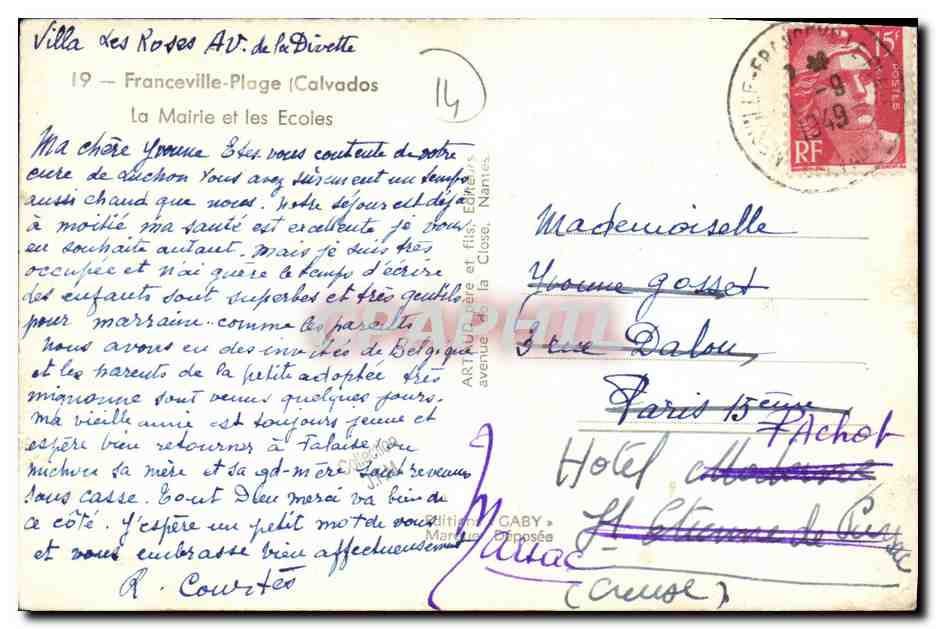 Villa Les Roses AV. de la Divette
19 — Franceville-Plage (Calvados
La Mairie et les Ecoles
14
Ma chère Yvonne Etes vous contente de votre
cure de Luchon Vous avez sûrement un temps
aussi chaud que nous. Notre séjour est déjà
à moitié, ma santé est excellente je vous
en souhaite autant. Mais je suis très
occupée et n'ai guère le temps d'écrire
des enfants sont superbes et très gentils
pour marraine comme les parents
Nous avons eu des invités de Belgique
et les parents de la petite adoptée très
mignonne sont venus quelques jours.
ma vieille amie est toujours jeune et
espère bien retourner à Falaise ou
michou sa mère et sa gd-mère sont revenues
sans casse. Tout Dieu merci va bien de
ce côté. J'espère un petit mot de vous
et vous embrasse bien affectueusement
R. Courtès
ARTAUD père et fils, Editeurs
avenue de la Close, Nantes
Editions "GABY"
Marque Déposée
15F
POSTES
RF
-9
1949
Mademoiselle
Yvonne Gosset
3 rue Dalou
Paris 15ème
Pachot
Hôtel Moderne
St Etienne de
Marsac
(Creuse)
CPAPHIL
Collection